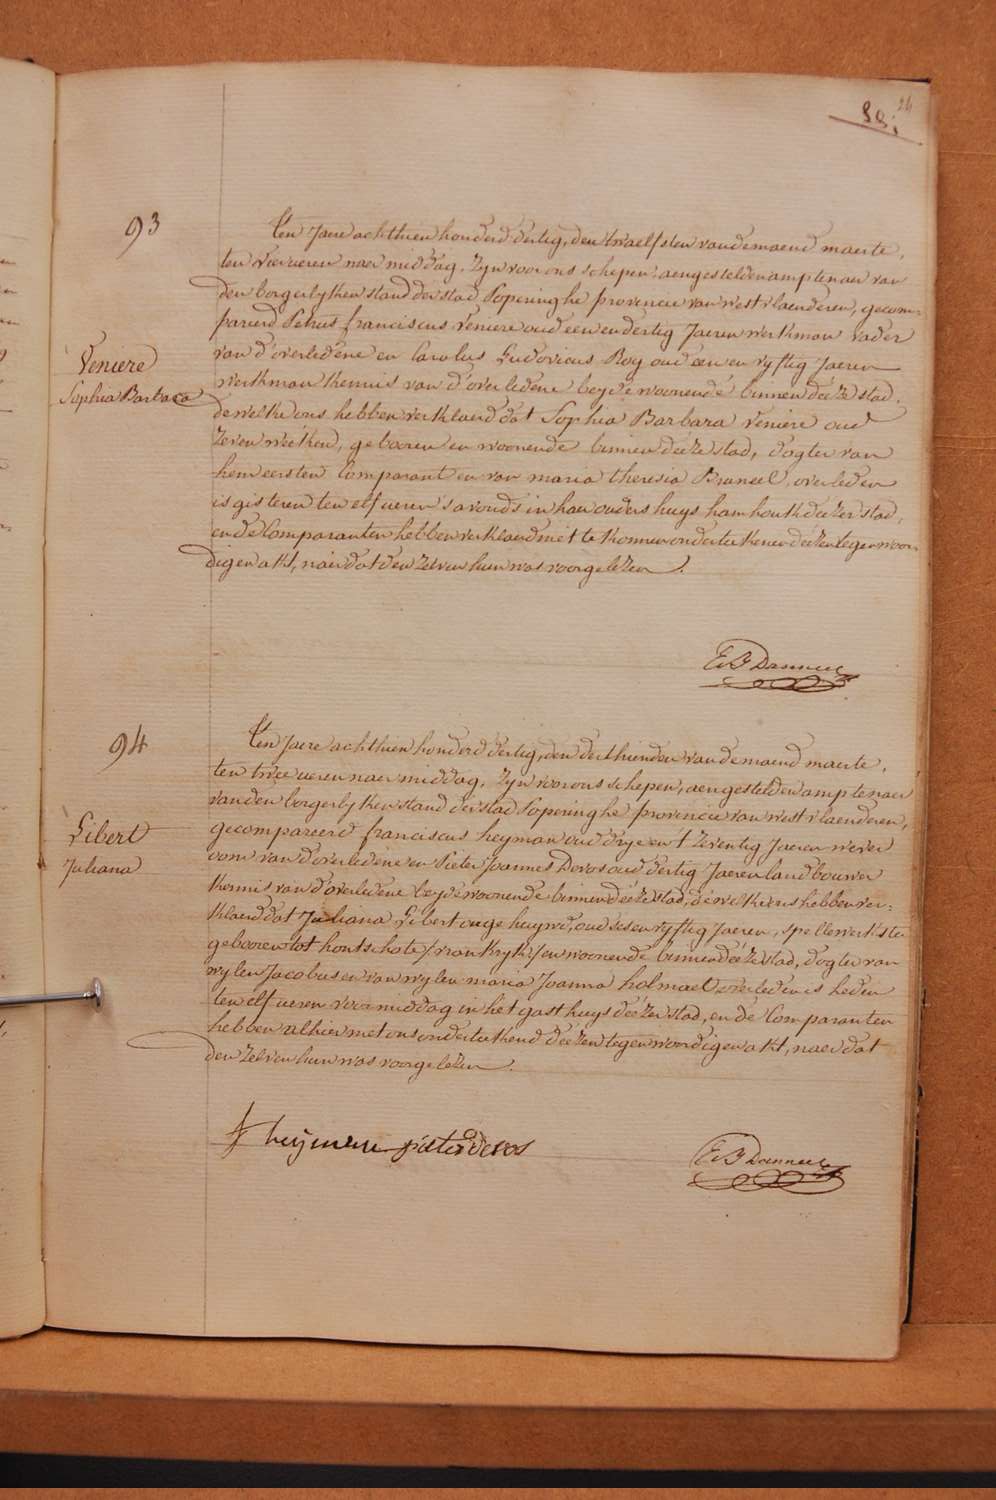 24
88.
93
Ten Jaere achthien honderd dertig, den twaelfsten van de maend maerte,
ten vier ueren naer middag, Zyn voor ons schepen, aengestelden amptenaer van
den borgerlyken stand der stad Poperinghe provincie van westvlaenderen, gecom-
pareerd Petrus franciscus Veniere oud een en dertig Jaeren werkman vader
van d'overledene en Carolus Ludovicus Roy oud een en vyftig Jaeren
werkman kennis van d'overledene beyde woonende binnen deeze stad,
dewelke ons hebben verklaerd dat Sophia Barbara Veniere oud
zeven weeken, gebooren en woonende binnen deeze stad, dogter van
hem eersten Comparant en van maria theresia Braneel, overleden
is gisteren ten elf ueren s'avonds in haer ouders huys hamhoutk deezer stad,
en de Comparanten hebben verklaerd niet te konnen onderteekenen deezen tegenwoor-
digen akt, naer dat den zelven hun was voorgelezen.
Veniere
Sophia Barbara
E B Danneel
94
Ten Jaere achthien honderd dertig, den derthienden van de maend maerte,
ten twee ueren naer middag, Zyn voor ons schepen, aengestelden amptenaer
van den borgerlyken stand der stad Poperinghe provincie van westvlaenderen,
gecompareerd franciscus heyman oud drye en 't zeventig Jaeren wever
oom van d'overledene en Pieter Joannes Devos oud dertig Jaeren landbouwer
kennis van d'overledene beyde woonende binnen deeze stad, dewelke ons hebben ver-
klaerd dat Juliana Libert ongehuywd, oud ses en vyftig Jaeren, spellewerkster
gebooren tot hontschote /vrankryk/ en woonende binnen deeze stad, dogter van
wylen Jacobus en van wylen maria Joanna holmaet overleden is heden
ten elf ueren voormiddag in het gasthuys deezer stad, en de Comparanten
hebben alhier met ons onderteekend deezen tegenwoordigen akt, naer dat
den zelven hun was voorgelezen.
Libert
Juliana
f heyman pieter devos
E B Danneel